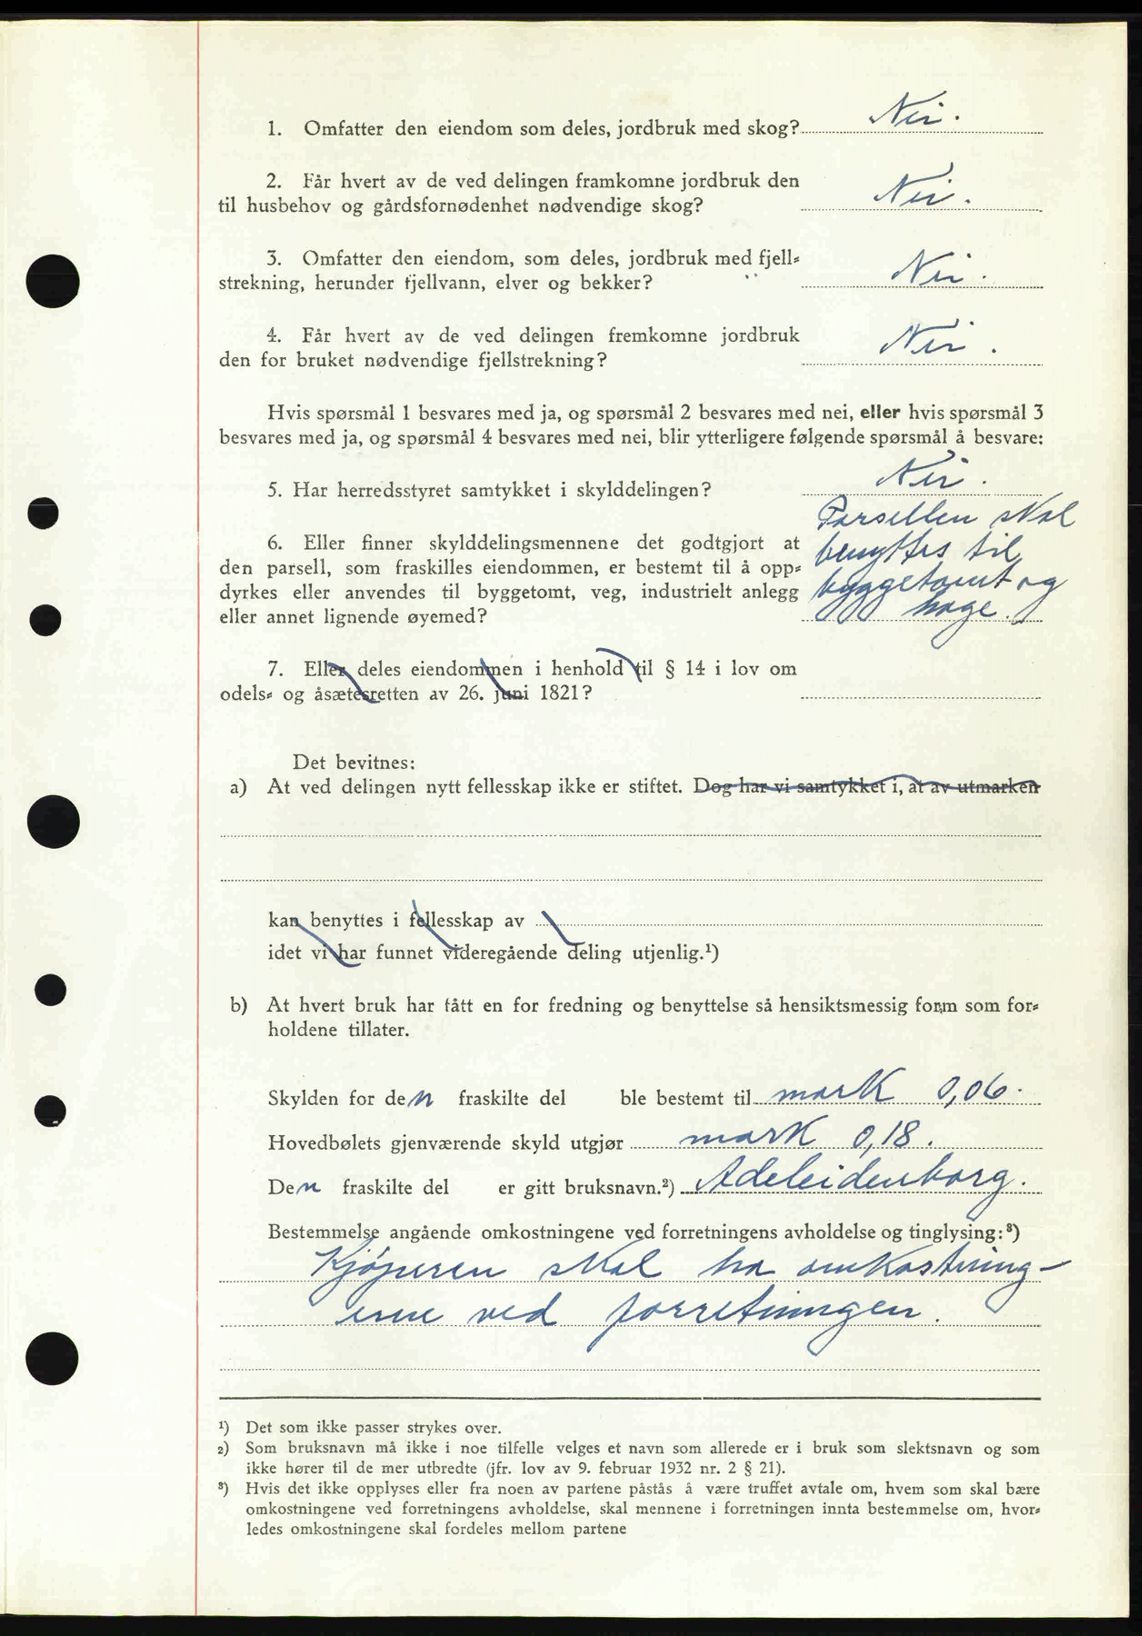 1. Omfatter den eiendom som deles, jordbruk med skog? Nei.
2. Får hvert av de ved delingen framkomne jordbruk den
til husbehov og gårdsfornødenhet nødvendige skog? Nei.
3. Omfatter den eiendom, som deles, jordbruk med fjell-
strekning, herunder fjellvann, elver og bekker? Nei.
4. Får hvert av de ved delingen fremkomne jordbruk
den for bruket nødvendige fjellstrekning? Nei.
Hvis spørsmål 1 besvares med ja, og spørsmål 2 besvares med nei, eller hvis spørsmål 3
besvares med ja, og spørsmål 4 besvares med nei, blir ytterligere følgende spørsmål å besvare:
5. Har herredsstyret samtykket i skylddelingen? Nei.
6. Eller finner skylddelingsmennene det godtgjort at
den parsell, som fraskilles eiendommen, er bestemt til å opp-
dyrkes eller anvendes til byggetomt, veg, industrielt anlegg
eller annet lignende øyemed?
Parsellen skal
benyttes til
byggetomt og
hage.
7. Eller deles eiendommen i henhold til § 14 i lov om
odels- og åsætesretten av 26. juni 1821?
Det bevitnes:
a) At ved delingen nytt fellesskap ikke er stiftet. Dog har vi samtykket i, at av utmarken
kan benyttes i fellesskap av
idet vi har funnet videregående deling utjenlig.¹)
b) At hvert bruk har fått en for fredning og benyttelse så hensiktsmessig form som for-
holdene tillater.
Skylden for den fraskilte del ble bestemt til mark 0,06.
Hovedbølets gjenværende skyld utgjør mark 0,18.
Den fraskilte del er gitt bruksnavn.²) Adeleidenborg.
Bestemmelse angående omkostningene ved forretningens avholdelse og tinglysing:³)
Kjøperen skal ha omkostning-
ene ved forretningen.
¹) Det som ikke passer strykes over.
²) Som bruksnavn må ikke i noe tilfelle velges et navn som allerede er i bruk som slektsnavn og som
ikke hører til de mer utbredte (jfr. lov av 9. februar 1932 nr. 2 § 21).
³) Hvis det ikke opplyses eller fra noen av partene påstås å være truffet avtale om, hvem som skal bære
omkostningene ved forretningens avholdelse, skal mennene i forretningen innta bestemmelse om, hvor-
ledes omkostningene skal fordeles mellom partene